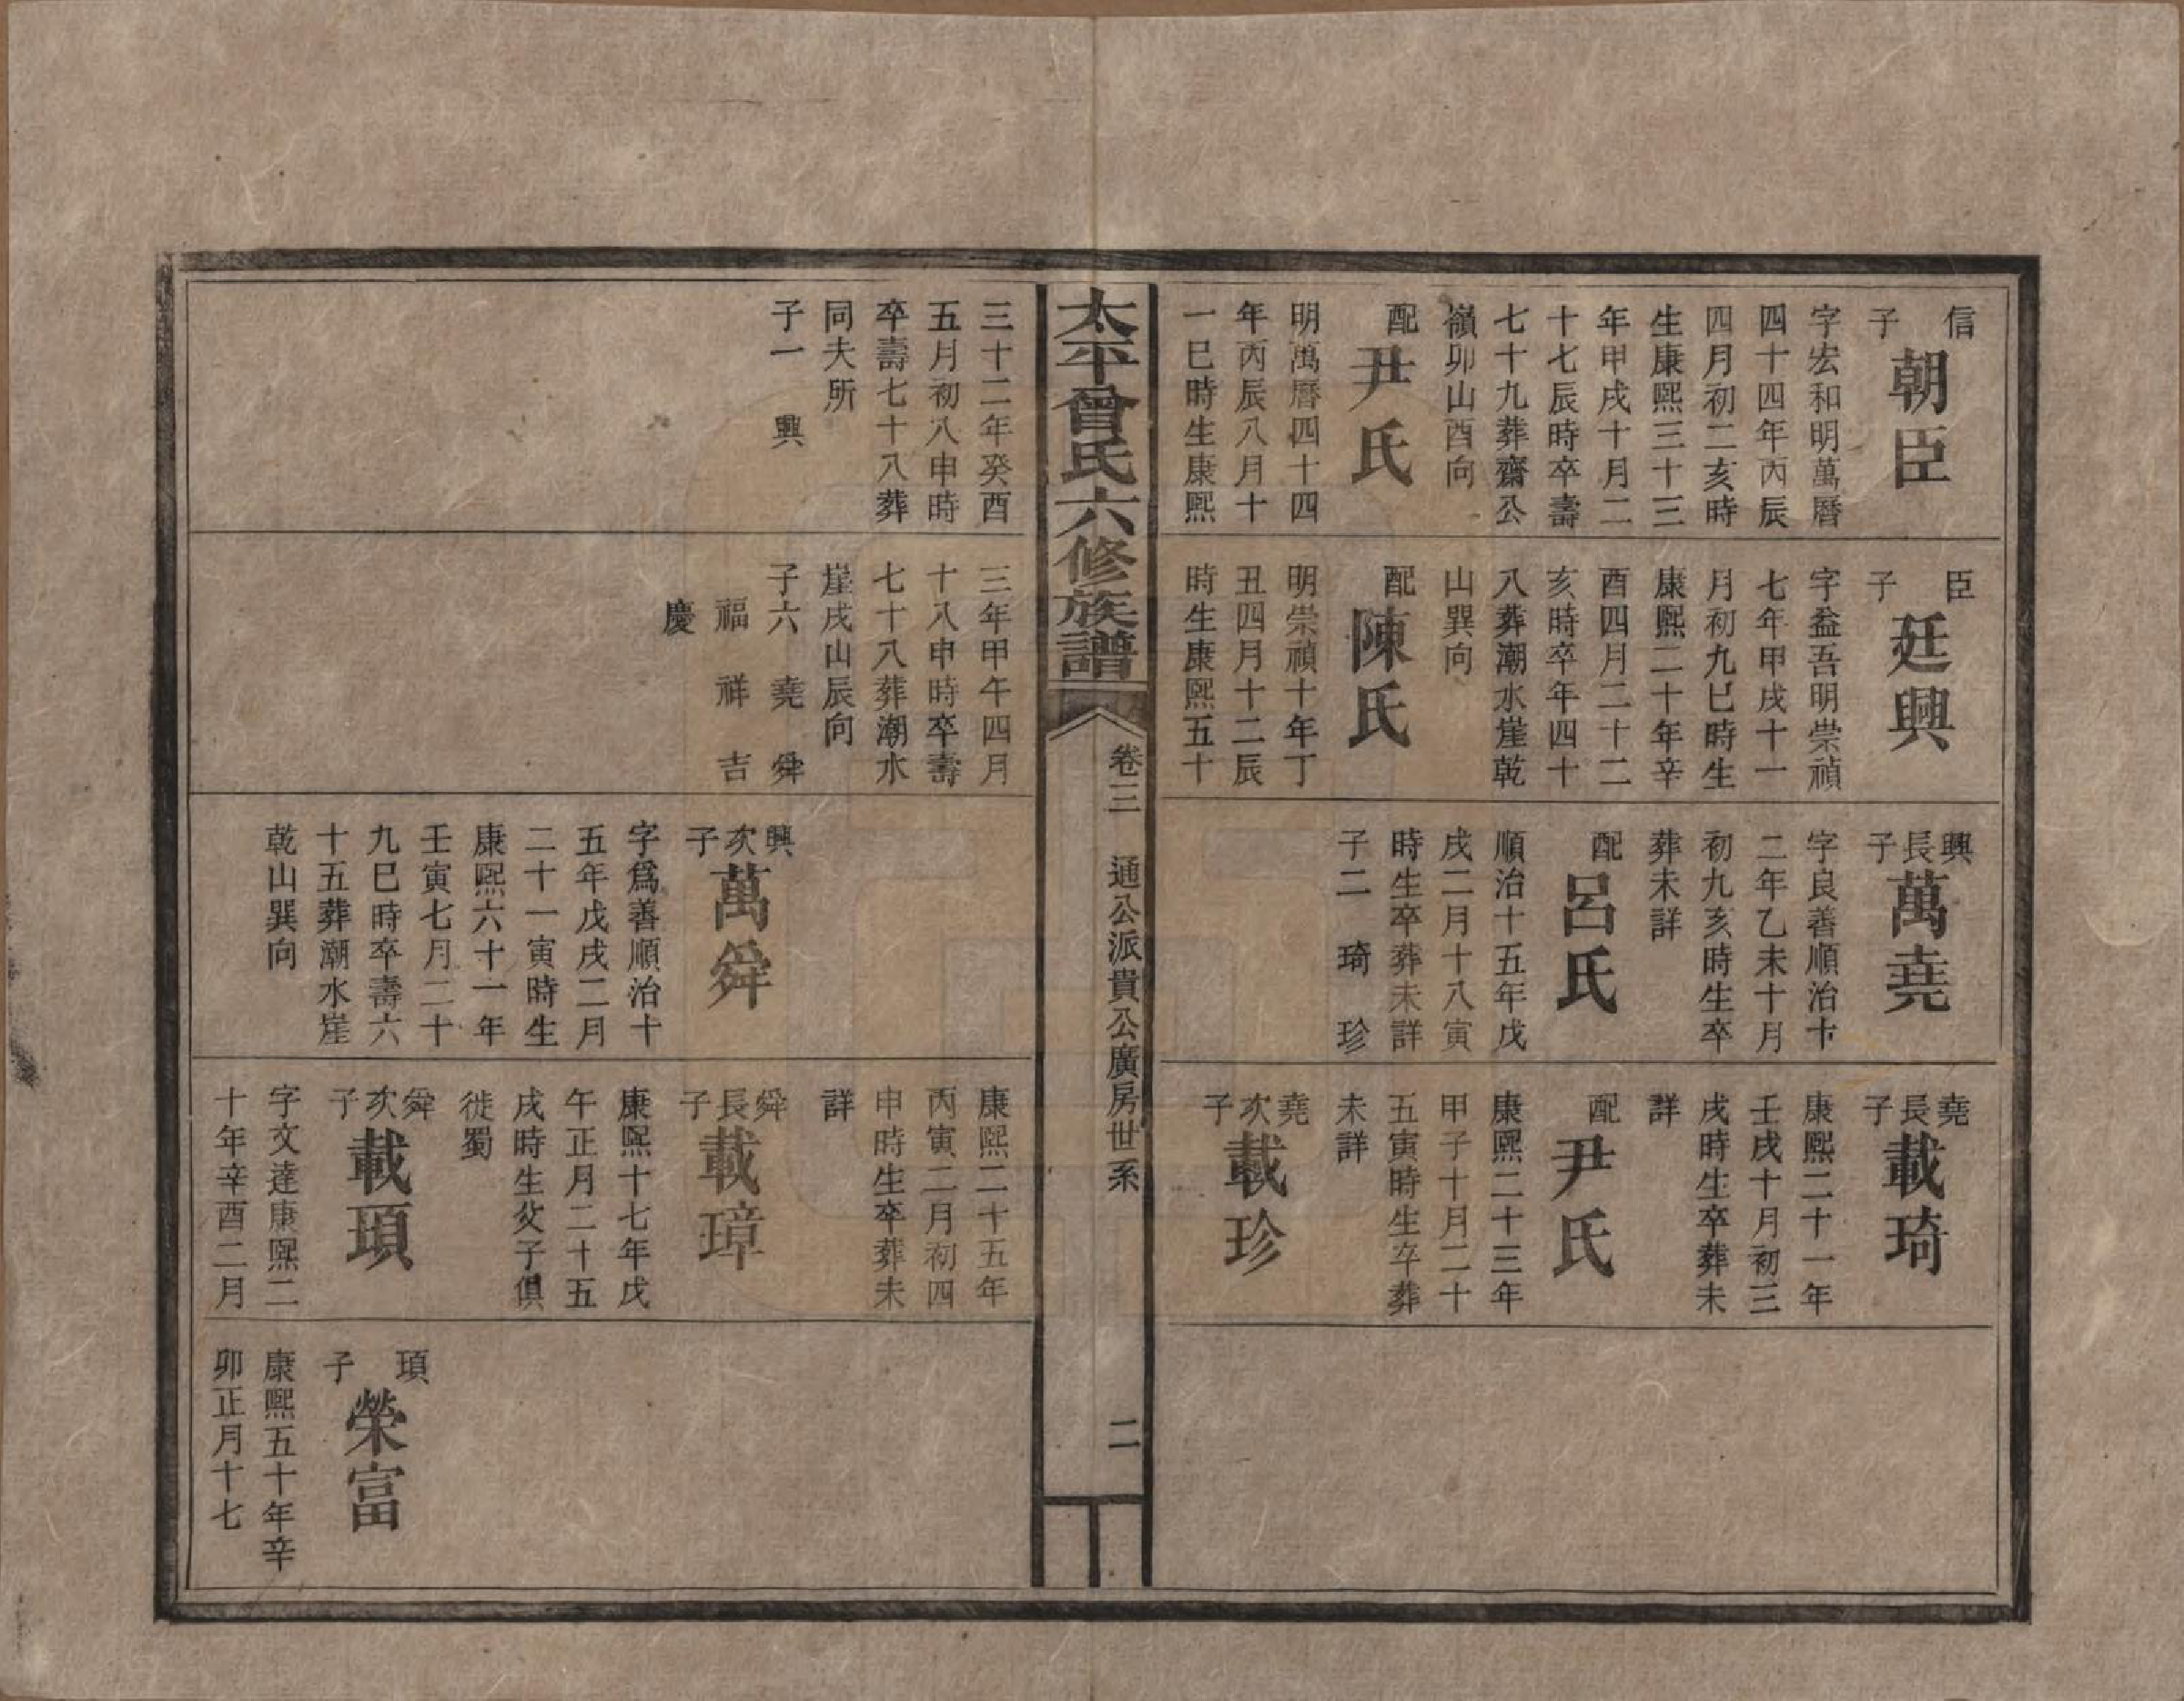 信子
朝臣
字宏和明萬曆
四十四年丙辰
四月初二亥時
生康熙三十三
年甲戌十月二
十七辰時卒壽
七十九葬齋公
嶺卯山酉向
配
尹氏
明萬曆四十四
年丙辰八月十
一巳時生康熙
臣子
廷興
字益吾明崇禎
七年甲戌十一
月初九巳時生
康熙二十年辛
酉四月二十二
亥時卒年四十
八葬潮水崖乾
山巽向
配
陳氏
明崇禎十年丁
丑四月十二辰
時生康熙五十
興長子
萬堯
字良善順治十
二年乙未十月
初九亥時生卒
葬未詳
配
呂氏
順治十五年戊
戌二月十八寅
時生卒葬未詳
子二 琦 珍
堯長子
載琦
康熙二十一年
壬戌十月初三
戌時生卒葬未
詳
配
尹氏
康熙二十三年
甲子十月二十
五寅時生卒葬
未詳
堯次子
載珍
太平曾氏六修族譜
卷三 通公派貴公廣房世系
二
三十二年癸酉
五月初八申時
卒壽七十八葬
同夫所
子一 興
三年甲午四月
十八申時卒壽
七十八葬潮水
崖戌山辰向
子六 堯 舜
福 祥 吉
慶
興次子
萬舜
字為善順治十
五年戊戌二月
二十一寅時生
康熙六十一年
壬寅七月二十
九巳時卒壽六
十五葬潮水崖
乾山巽向
康熙二十五年
丙寅二月初四
申時生卒葬未
詳
舜長子
載璋
康熙十七年戊
午正月二十五
戌時生父子俱
徙蜀
舜次子
載頊
字文達康熙二
十年辛酉二月
頊子
榮富
康熙五十年辛
卯正月十七